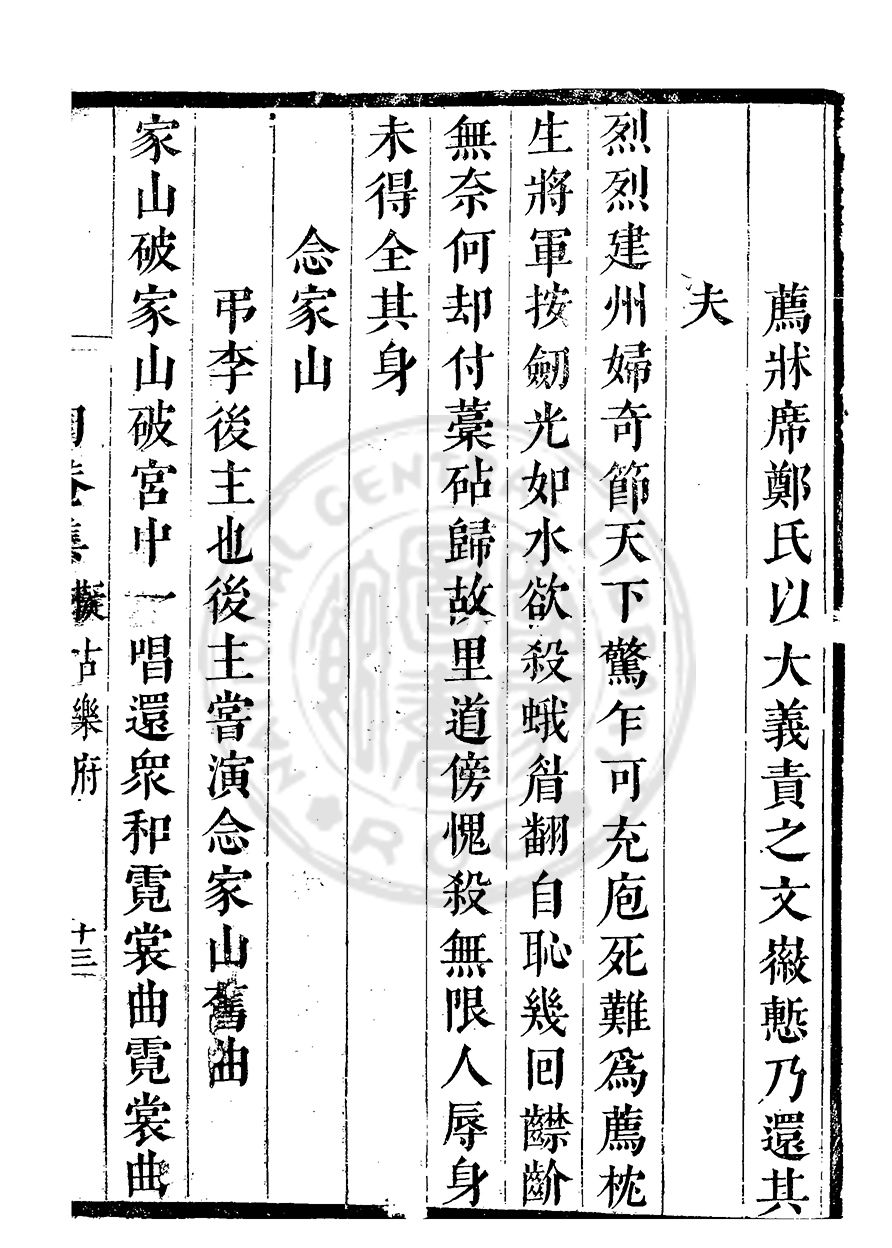 薦牀席鄭氏以大義責之文徽慙乃還其
夫
烈烈建州婦奇節天下驚乍可充庖死難爲薦枕
生將軍按劒光如水欲殺蛾眉翻自恥幾回齽齘
無奈何却付藁砧歸故里道傍愧殺無限人辱身
未得全其身
念家山
弔李後主也後主嘗演念家山舊曲
家山破家山破宮中一唱還衆和霓裳曲霓裳曲
集擬古樂府
十三